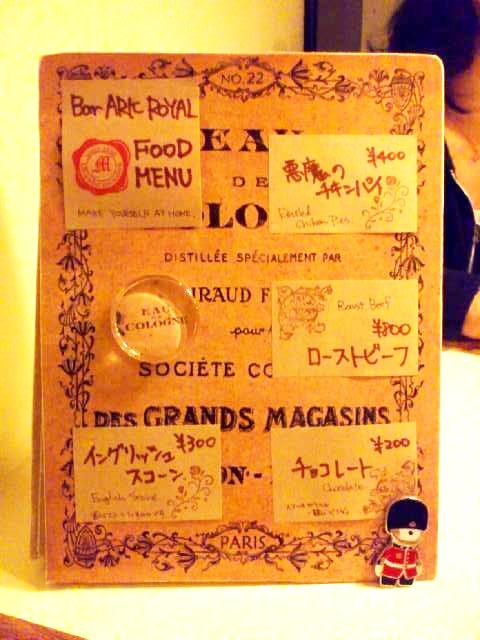 NO. 22
Bar ARK ROYAL
FOOD
MENU
M
MAKE YOURSELF AT HOME.
EAU
DE
COLO
DISTILLÉE SPÉCIALEMENT PAR
IRAUD F
pour
SOCIÉTÉ CO
DES GRANDS MAGASINS
ON
PARIS
EAU
COLOGNE
¥400
悪魔の
チキンパイ
Devild
Chicken Pies
Roast Beef
¥800
ローストビーフ
¥300
イングリッシュ
スコーン
English Scone
¥200
チョコレート
Chocolate